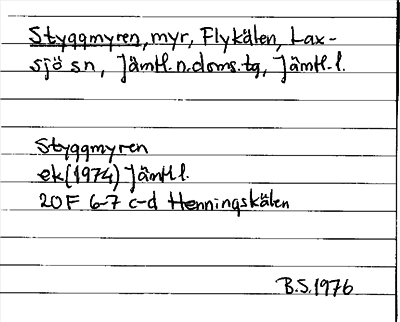 Styggmyren, myr, Flykälen, Lax-
sjö sn, Jämtl.n.doms.tg, Jämtl.l.
Styggmyren
ek (1974) Jämtl l.
20F 6-7 c-d Henningskälen
B.S. 1976